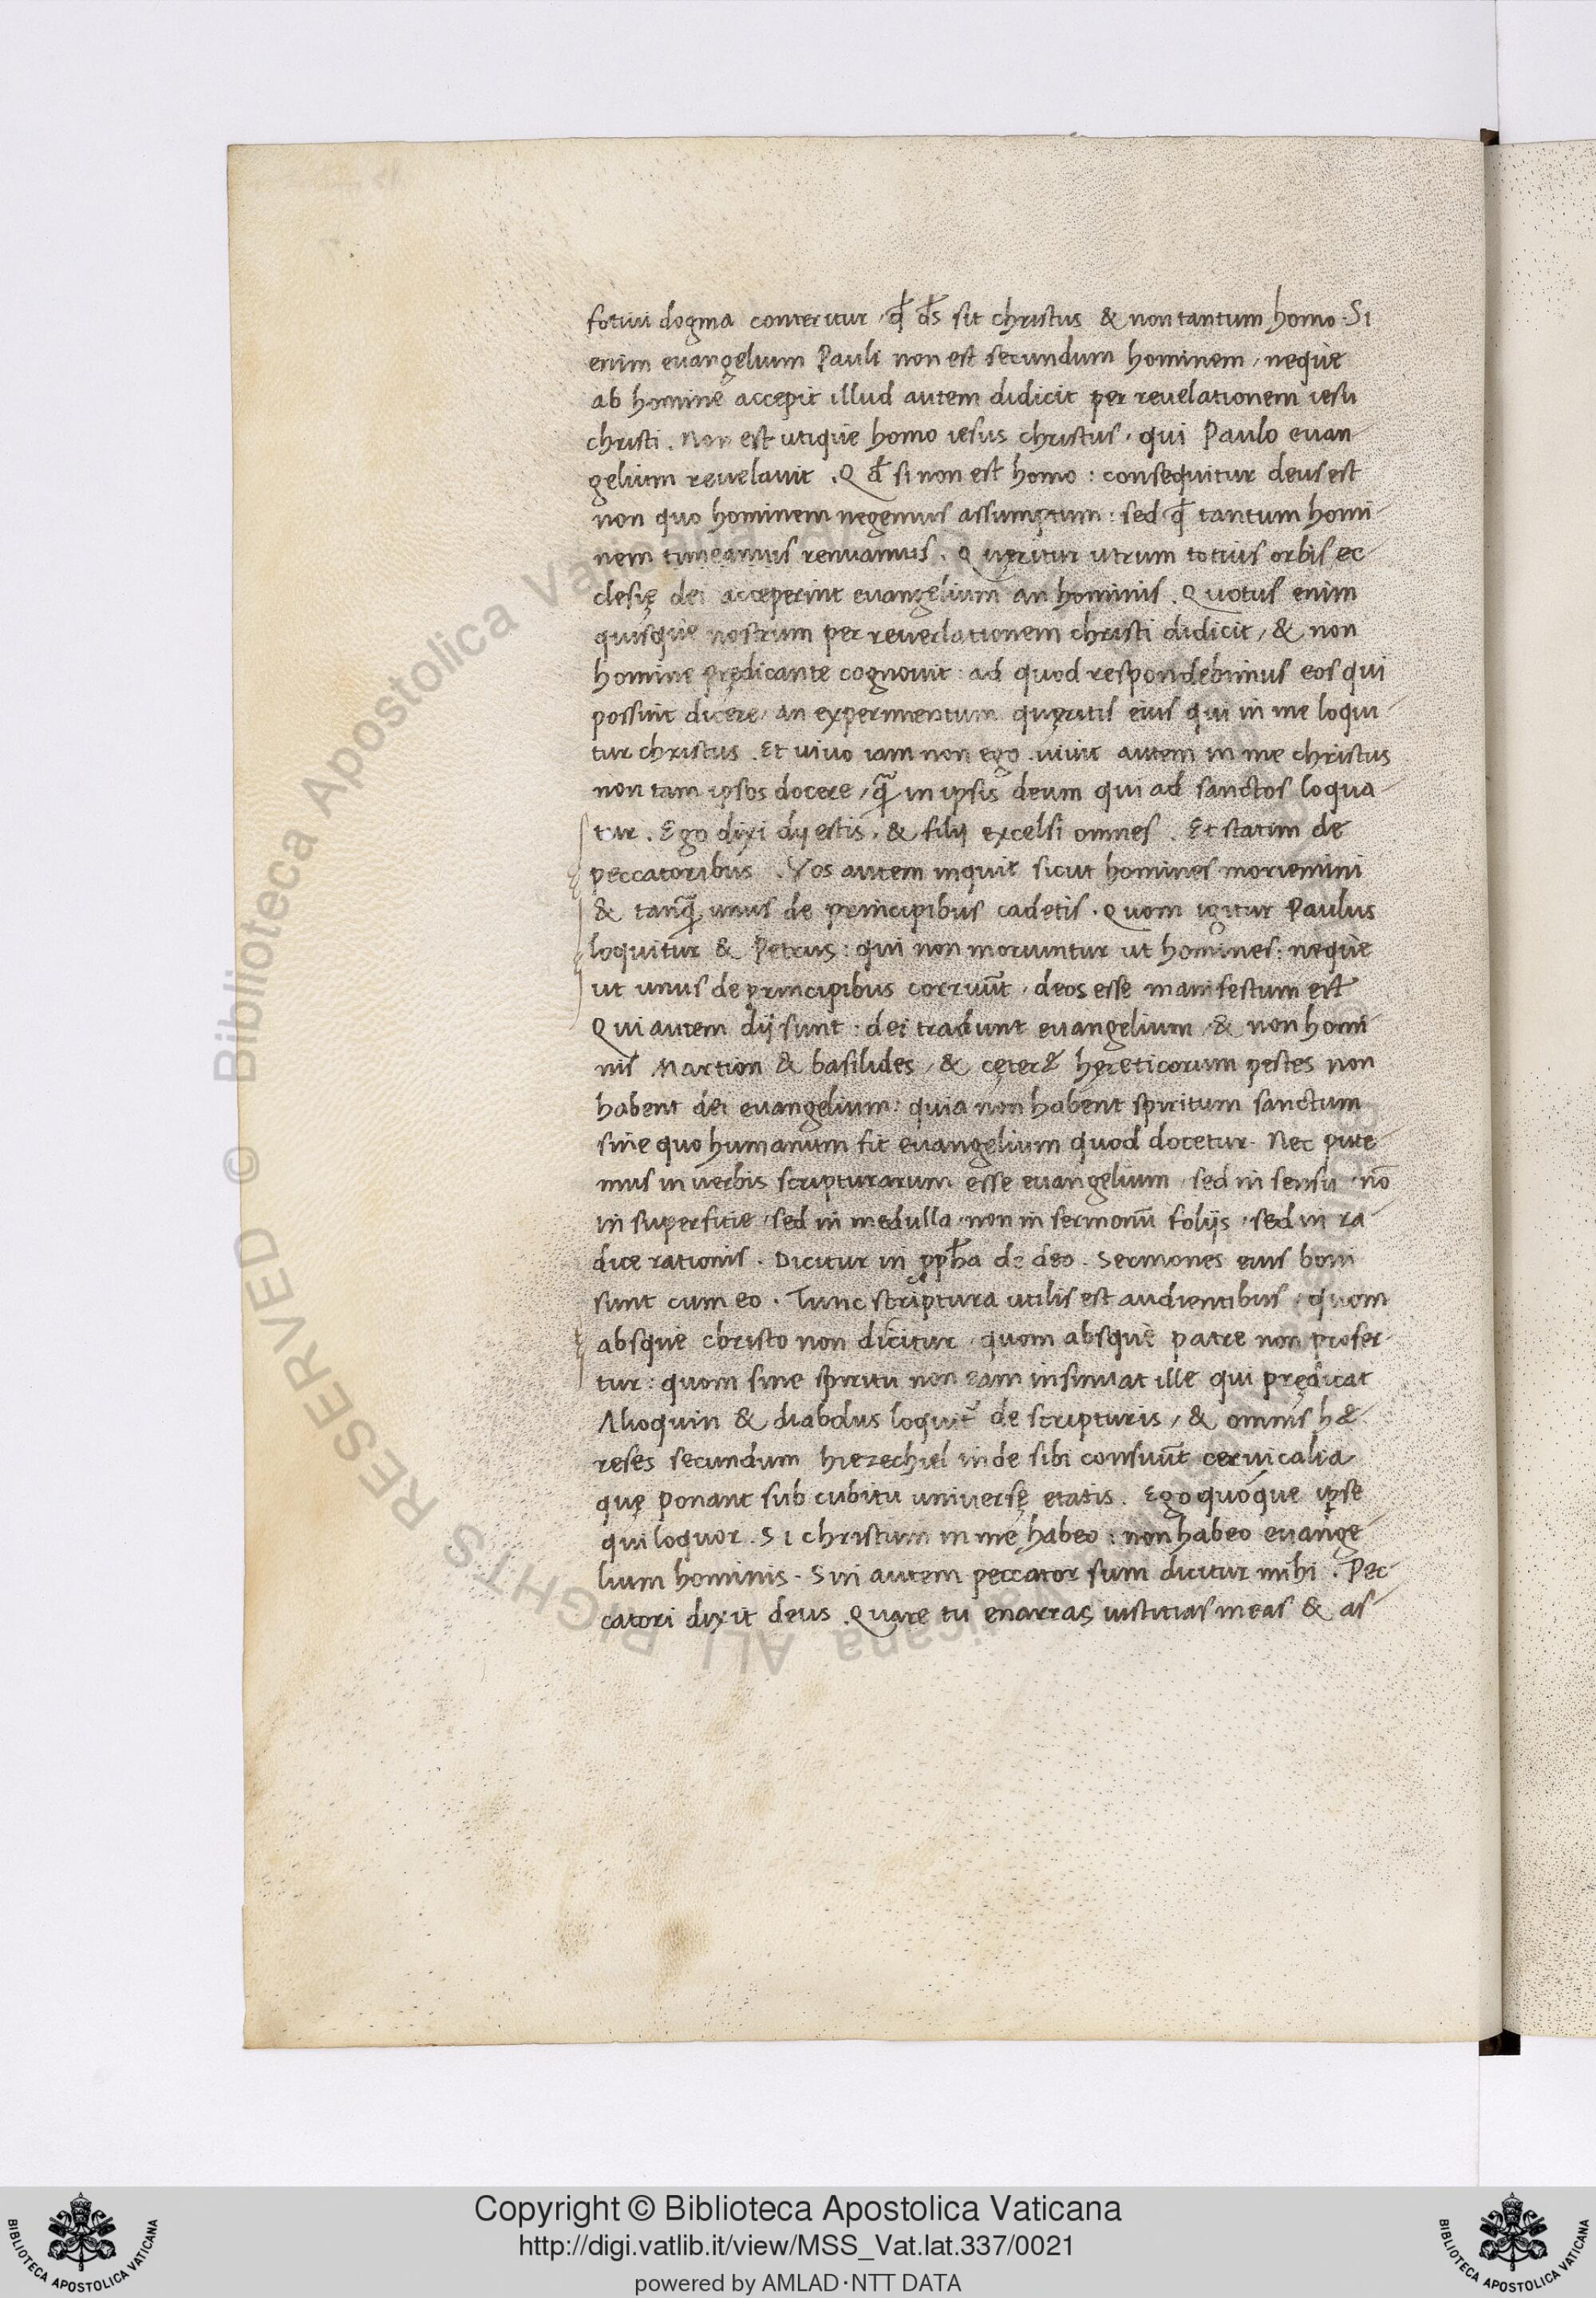 fotini dogma conteritur · qđ ds̄ sit christus & non tantum homo · Si
enim euangelium Pauli non est secundum hominem, neque
ab homine accepit illud autem didicit per reuelationem iesu
christi. Non est utique homo iesus christus · qui Paulo euan-
gelium reuelauit. Qđ si non est homo: consequitur deus est
non quo hominem negemus assumptum: sed qđ tantum homi-
nem timeamus renuamus. Queritur utrum totius orbis ec-
clesię dei acceperint euangelium an hominis. Quotus enim
quisque nostrum per reuerlationem christi didicit, & non
homine prędicante cognouit: ad quod respondebimus eos qui
possint dicere, an experimentum quęritis eius qui in me loqui-
tur christus. Et uiuo iam non ego. uiuit autem in me christus
non tam ipsos docere, q̄ in ipsis deum qui ad sanctos loqua-
tur. Ego dixi dij estis. & filij excelsi omnes. Et statim de
peccatoribus. Vos autem inquit sicut homines moriemini
& tanq̄ unus de principibus cadetis. Quom igitur Paulus
loquitur & Petrus: qui non moriuntur ut homines: neque
ut unus de principibus corruūt · deos esse manifestum est
Qui autem dij sunt · dei tradunt euangelium, & non homi-
nis Martion & basilides, & cęter& hęreticorum pestes non
habent dei euangelium: quia non habent spiritum sanctum
sine quo humanum fit euangelium quod docetur. Nec pute-
mus in uerbis scripturarum esse euangelium, sed in sensu · nō
in superficie · sed in medulla · non in sermonū folijs · sed in ra-
dice rationis. Dicitur in ppħa de deo. Sermones eius boni
sunt cum eo. Tunc scriptura utilis est audientibus, quom
absque christo non dicitur · quom absque patre non profer-
tur: quom sine spiritu non eam insinuat ille qui prędicat
Alioquin & diabolus loquit̄ de scripturis, & omnis h&-
reses secundum hiezechiel inde sibi consuūt ceruicalia
quę ponant sub cubitu uniuersę etatis. Ego quoque ipse
qui loquor. Si christum in me habeo: non habeo euange-
lium hominis. Sin autem peccator sum dicitur mihi. Pec-
catori dixit deus. Quare tu enarras iustitias meas & as-
© Biblioteca Apostolica Vaticana ALL RIGHTS RESERVED
Copyright © Biblioteca Apostolica Vaticana
http://digi.vatlib.it/view/MSS_Vat.lat.337/0021
powered by AMLAD·NTT DATA
BIBLIOTECA APOSTOLICA VATICANA
BIBLIOTECA APOSTOLICA VATICANA